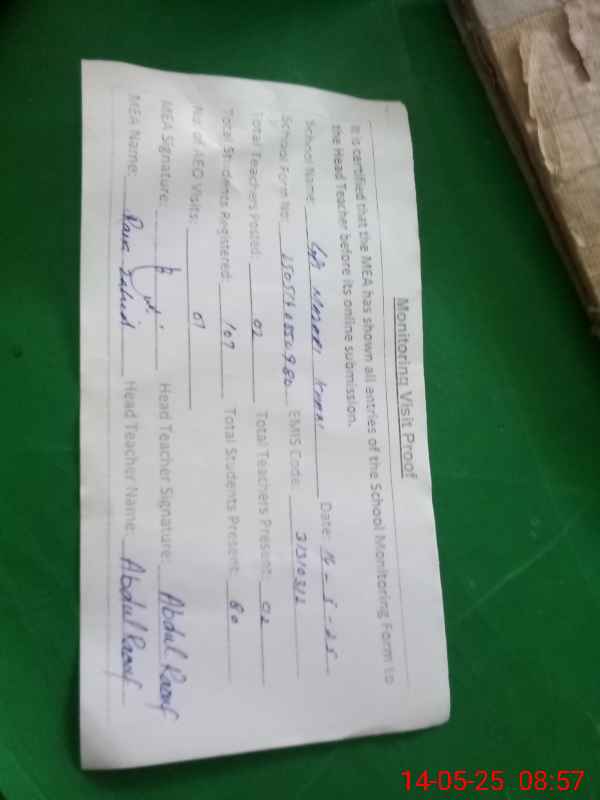 Monitoring Visit Proof
It is certified that the MEA has shown all entries of the School Monitoring Form to
the Head Teacher before its online submission.
School Name: Date: 14-5-25
School Form No: EMIS Code: 31310312
Total Teachers Posted: 02 Total Teachers Present: 02
Total Students Registered: 107 Total Students Present: 80
No of AEO Visits: 01
MEA Signature: Head Teacher Signature: Abdul Raoof
MEA Name: Rana Zahid Head Teacher Name: Abdul Raoof
14-05-25 08:57